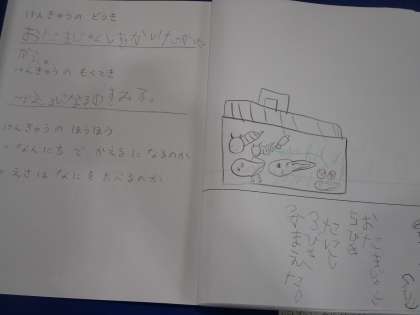 けんきゅうの どうき
おたまじゃくしをかいたかった
から。
けんきゅうの もくてき
けんきゅうの ほうほう
・なんにち で かえるに なるのか
・えさは なにを たべるのか
おたまじゃくし
5ひき
たにし
3びき
つかまえたよ